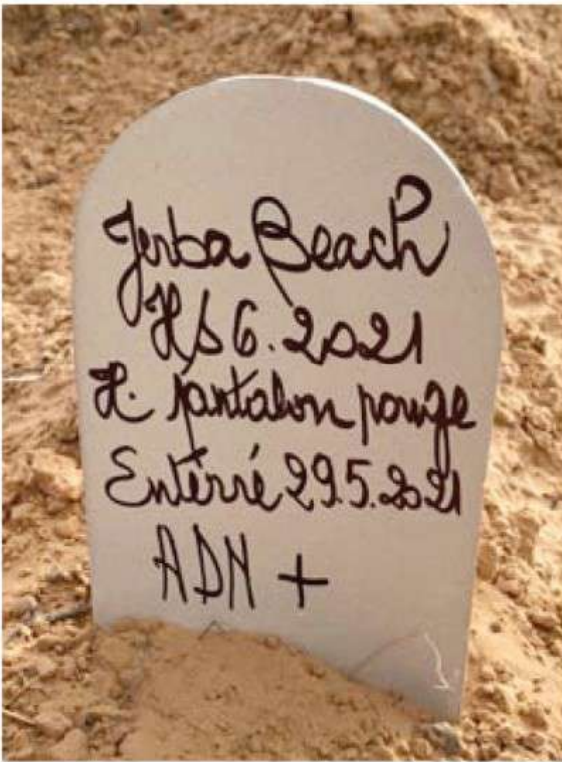 Jerba Beach
H/S 6.2021
H. pantalon rouge
Entérré 29.5.2021
ADN +